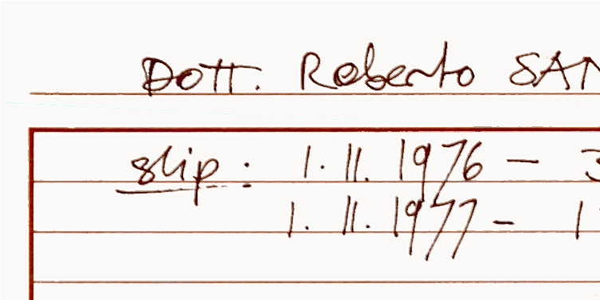 Dott. Roberto SAN
slip: 1.11.1976 - 3
1.11.1977 - 1